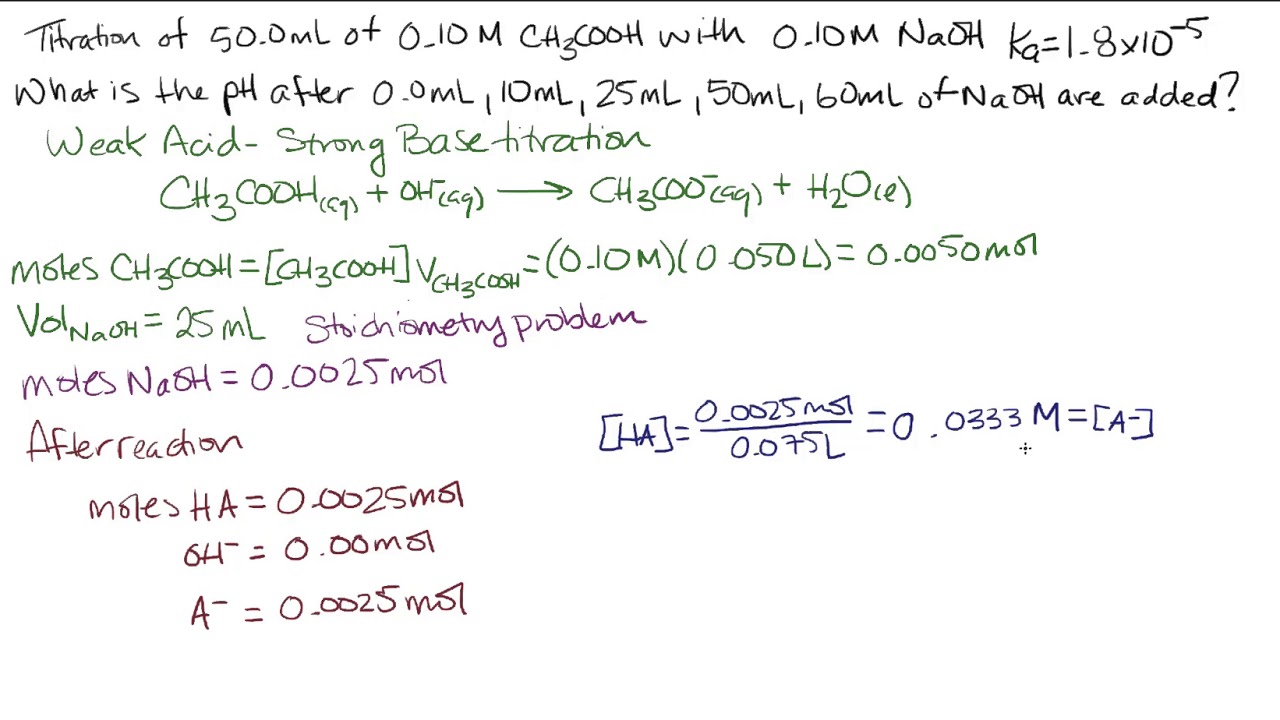 Titration of 50.0mL of 0.10M CH₃COOH with 0.10M NaOH Ka=1.8x10⁻⁵
What is the pH after 0.0mL, 10mL, 25mL, 50mL, 60mL of NaOH are added?
Weak Acid- Strong Base titration
CH₃COOH(aq) + OH⁻(aq) ⟶ CH₃COO⁻(aq) + H₂O(l)
moles CH₃COOH=[CH₃COOH]V_CH₃COOH=(0.10M)(0.050L)=0.0050mol
Vol_NaOH=25mL Stoichiometry problem
moles NaOH=0.0025mol
After reaction
[HA]=0.0025mol/0.075L=0.0333M=[A⁻]
moles HA=0.0025mol
OH⁻=0.00mol
A⁻=0.0025mol